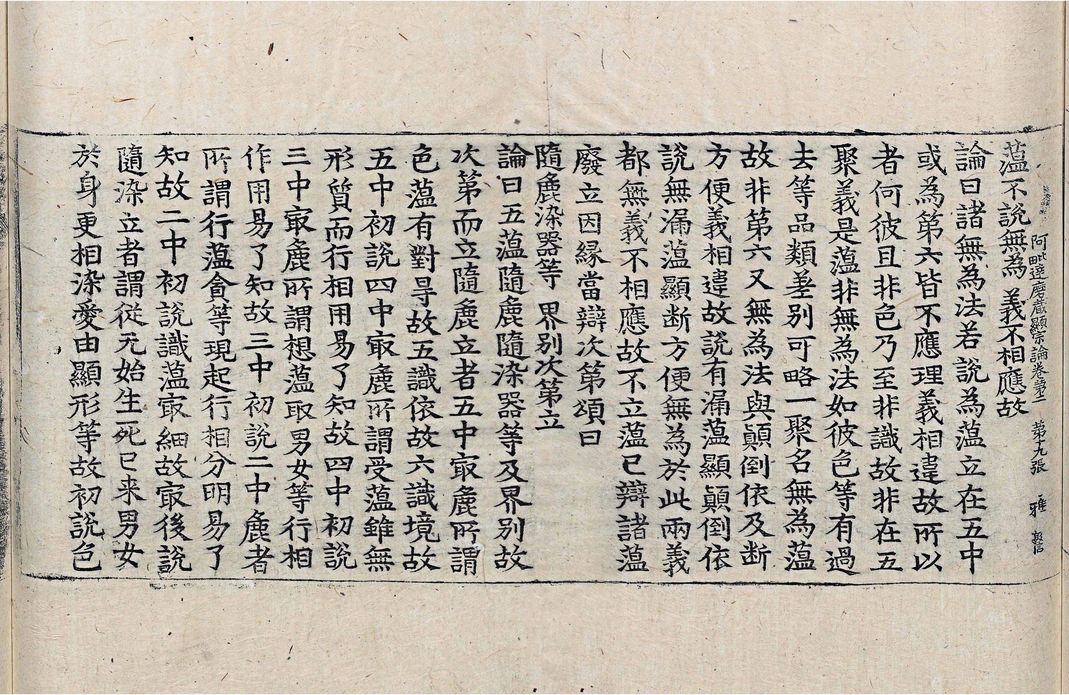 阿毗達磨藏顯宗論卷第二 第十九張 雅
薀不說無為 義不相應故
論曰諸無為法若說為薀立在五中
或為第六皆不應理義相違故所以
者何彼且非色乃至非識故非在五
聚義是薀非無為法如彼色等有過
去等品類差別可略一聚名無為薀
故非第六又無為法與顛倒依及断
方便義相違故說有漏薀顯顛倒依
說無漏薀顯断方便無為於此兩義
都無義不相應故不立薀已辯諸薀
廢立因緣當辯次第頌曰
隨麁染器等 界別次第立
論曰五薀隨麁隨染器等及界別故
次第而立隨麁立者五中㝡麁所謂
色薀有對㝵故五識依故六識境故
五中初說四中㝡麁所謂受薀雖無
形質而行相用易了知故四中初說
三中㝡麁所謂想薀取男女等行相
作用易了知故三中初說二中麁者
所謂行薀貪等現起行相分明易了
知故二中初說識薀㝡細故㝡後說
隨染立者謂從无始生死已来男女
於身更相染愛由顯形等故初說色